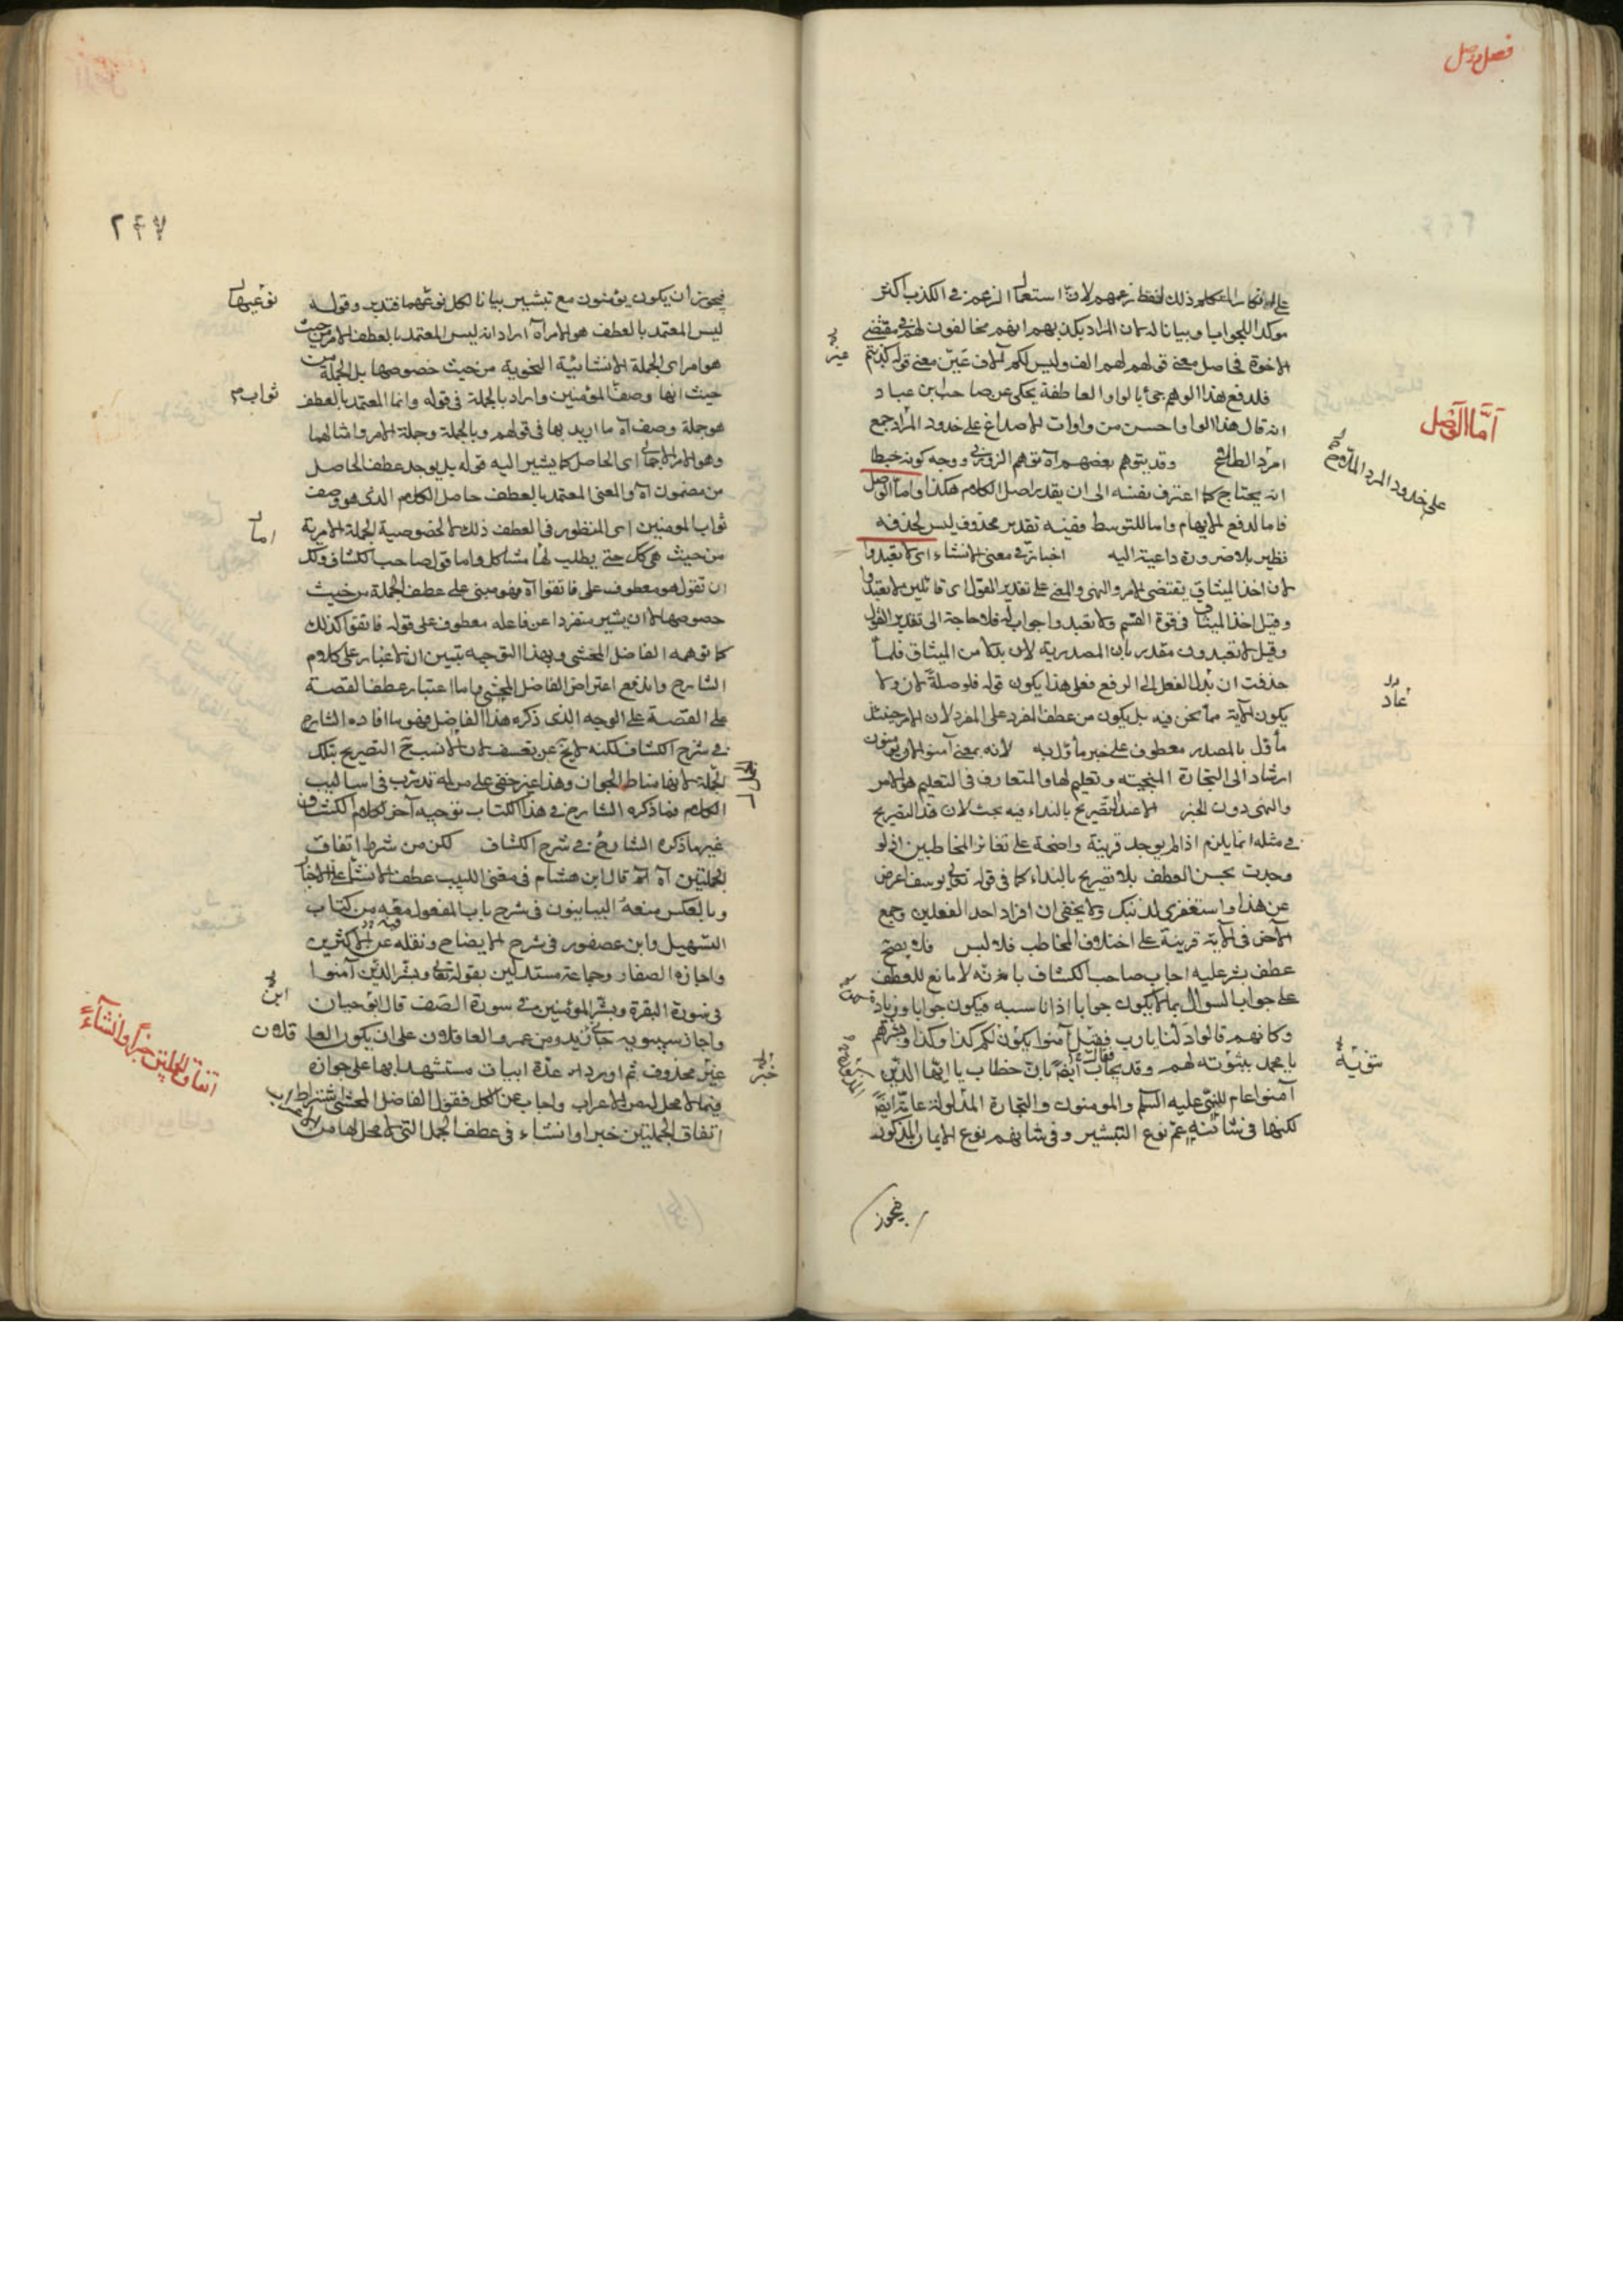 فصل وصل
على انكار المتكلم ذلك لفظ زعمهم لان استعمال الزعم فى الكذب اكثر
موكدا للجواب وبيانا لان المراد يكذبهم انهم مخالفون لهم فى مقتضى
الاخوة فحاصل معنى قولهم لهم الف وليس لكم آلاف عين معنى قوله كذبتم
فلدفع هذا الوهم جئ بالواو العاطفة يحكى عن صاحب ابن عباد
انه قال هذا الواو احسن من واوات الاصداغ على خدود المراد جمع
امرد الطالع وقد يتوهم بعضهم آه توهم الزوزنى ووجه كونه خبطا
انه يحتاج كما اعترف بنفسه الى ان يقدر اصل الكلام هكذا واما الوصل
فاما لدفع الايهام واما للتوسط وفيه تقدير محذوف ليس لحذفه
نظير بلا ضرورة داعية اليه اخبار فى معنى الانشاء اى لا تعبدوا
لان اخذ الميثاق يقتضى الامر والنهى والمعنى على تقدير القول اى قائلين لا تعبدوا
وقيل اخذ الميثاق فى قوة القسم ولا تعبدوا جواب له فلا حاجة الى تقدير القول
وقيل لا تعبدون مقدر بان المصدرية لان بدلا من الميثاق فلما
حذفت ان بدل الفعل الى الرفع فعلى هذا يكون قوله فلو صلة لان ولا
يكون الآية مما نحن فيه بل يكون من عطف المفرد على المفرد لان الامر حينئذ
مأول بالمصدر معطوف على خبر مأول به لانه بمعنى آمنوا لان يؤمنون
ارشاد الى التجارة المنجية وتعليم لها والمتعارف فى التعليم هو الامر
والنهى دون الخبر الا عند التصريح بالنداء فيه بحث لان هذا التصريح
فى مثله انما يلزم اذا لم يوجد قرينة واضحة على تغاير المخاطبين اذ لو
وجدت يحسن العطف بلا تصريح بالنداء كما فى قوله تعالى يوسف اعرض
عن هذا واستغفرى لذنبك ولا يخفى ان افراد احد الفعلين وجمع
الآخر فى الآية قرينة على اختلاف المخاطب فلا لبس فلا يصح
عطف بشر عليه اجاب صاحب الكشاف بامرته لا مانع للعطف
على جواب السوال بما لا يكون جوابا اذا ناسبه فيكون جوابا وزيادة
وكانهم قالوا دلنا يا رب فقيل آمنوا يكون لكم كذا وكذا وبشرهم
يا محمد بثبوته لهم وقد يجاب ايضا بان خطاب يا ايها الذين
آمنوا عام للنبى عليه السلم والمومنون والتجارة المدلولة عامة ايضا
لكنها فى شانه عم نوع التبشير وفى شانهم نوع الايمان المذكور
فيجوز
اما الوصل
على خدود المرد الملاح
عاد
غير
٢٤٧
فيجوز ان يكون يؤمنون مع تبشير بيانا لكل نوعيهما فتدبر وقوله
ليس المعتمد بالعطف هو الامر آه اراد انه ليس المعتمد بالعطف الامر من حيث
هو امر اى الجملة الانشائية النحوية من حيث خصوصها بل الجملة من
حيث انها وصف المؤمنين واراد بالجملة فى قوله وانما المعتمد بالعطف
هو جملة وصف آه ما اريد بها فى قولهم وبالجملة وجملة الامر وامثالهما
وهو الامر الاجمالى اى الحاصل كما يشير اليه قوله بل يوجد عطف الحاصل
من مضمون آه والمعنى المعتمد بالعطف حاصل الكلام الذى هو وصف
ثواب المومنين اى المنظور فى العطف ذلك لا لخصوصية الجملة الامرية
من حيث هى كل حتى يطلب لها مشاكل واما قول صاحب الكشاف ولك
ان تقول هو معطوف على فاتقوا آه فهو مبنى على عطف الجملة من حيث
خصوصها لا ان يشير متفردا عن فاعله معطوف على قوله فاتقوا كذلك
كما توهمه الفاضل المحشى وبهذا التوجيه تبين ان لا غبار على كلام
الشارح واندفع اعتراض الفاضل المحشى واما اعتبار عطف القصة
على القصة على الوجه الذى ذكره هذا الفاضل فهو ما افاده الشارح
فى شرح الكشاف لكنه لا يخ عن تعسف لان الانسب ح التصريح بتلك
الجملة لانها مناط الجواز وهذا غير خفى على من له تدرب فى اساليب
الكلام فما ذكره الشارح فى هذا الكتاب توجيه آخر لكلام الكشاف
غير ما ذكره الشارح فى شرح الكشاف لكن من شرط اتفاق
الجملتين آه اه قال ابن هشام فى مغنى اللبيب عطف الانشاء على الاخبار
وبالعكس منعه البيانيون فى شرح باب المفعول معه من كتاب
التسهيل وابن عصفور فى شرح الايضاح ونقله عن الاكثرين
واجازه الصفار وجماعة مستدلين بقوله تعالى وبشر الذين آمنوا
فى سورة البقرة وبشر المؤمنين فى سورة الصف قال ابو حيان
واجاز سيبويه جاءنى زيد ومن عمرو العاقلان على ان يكون العاقلان
خبر محذوف ثم اورد له عدة ابيات مستشهدا بها على جوازه
فيما لا محل له من الاعراب واجاب عن الكل فقول الفاضل المحشى اشتراط
اتفاق الجملتين خبرا وانشاء فى عطف الجمل التى لا محل لها من
نوعيهما
ثواب
اما
ابن
خبر
اتفاق الجملتين خبراً وانشآءً